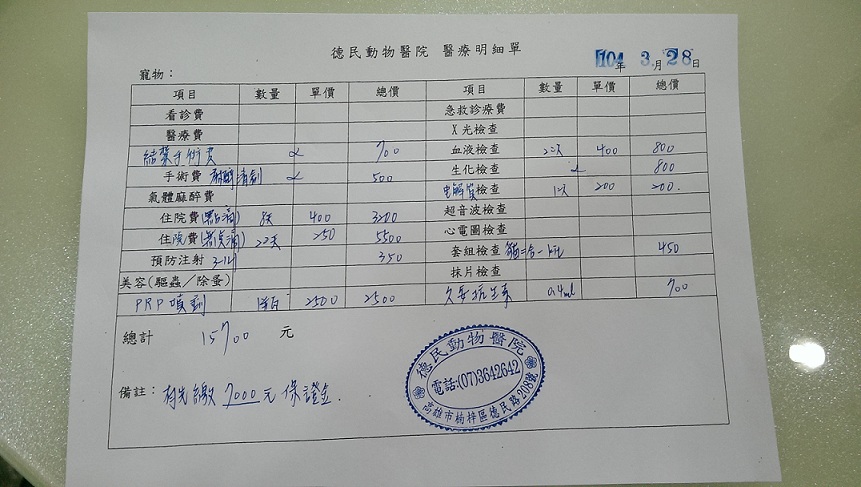 德民動物醫院 醫療明細單
104年 3月 28日
寵物：
項目 數量 單價 總價 項目 數量 單價 總價
看診費 急救診療費
醫療費 X光檢查
結紮手術費 700 血液檢查 2次 400 800
手術費 清創 500 生化檢查 800
氣體麻醉費 電解質檢查 1次 200 200.
住院費(點滴) 8天 400 3200 超音波檢查
住院費(無點滴) 22天 250 5500 心電圖檢查
預防注射 3-1 350 套組檢查 貓二合一 450
美容(驅蟲/除蚤) 抹片檢查
PRP噴劑 2500 2500 久安抗生素 0.4ml 700
總計 15700 元
備註： 有先繳 7000元 保證金.
德民動物醫院
電話:(07)3642642
高雄市楠梓區德民路208號